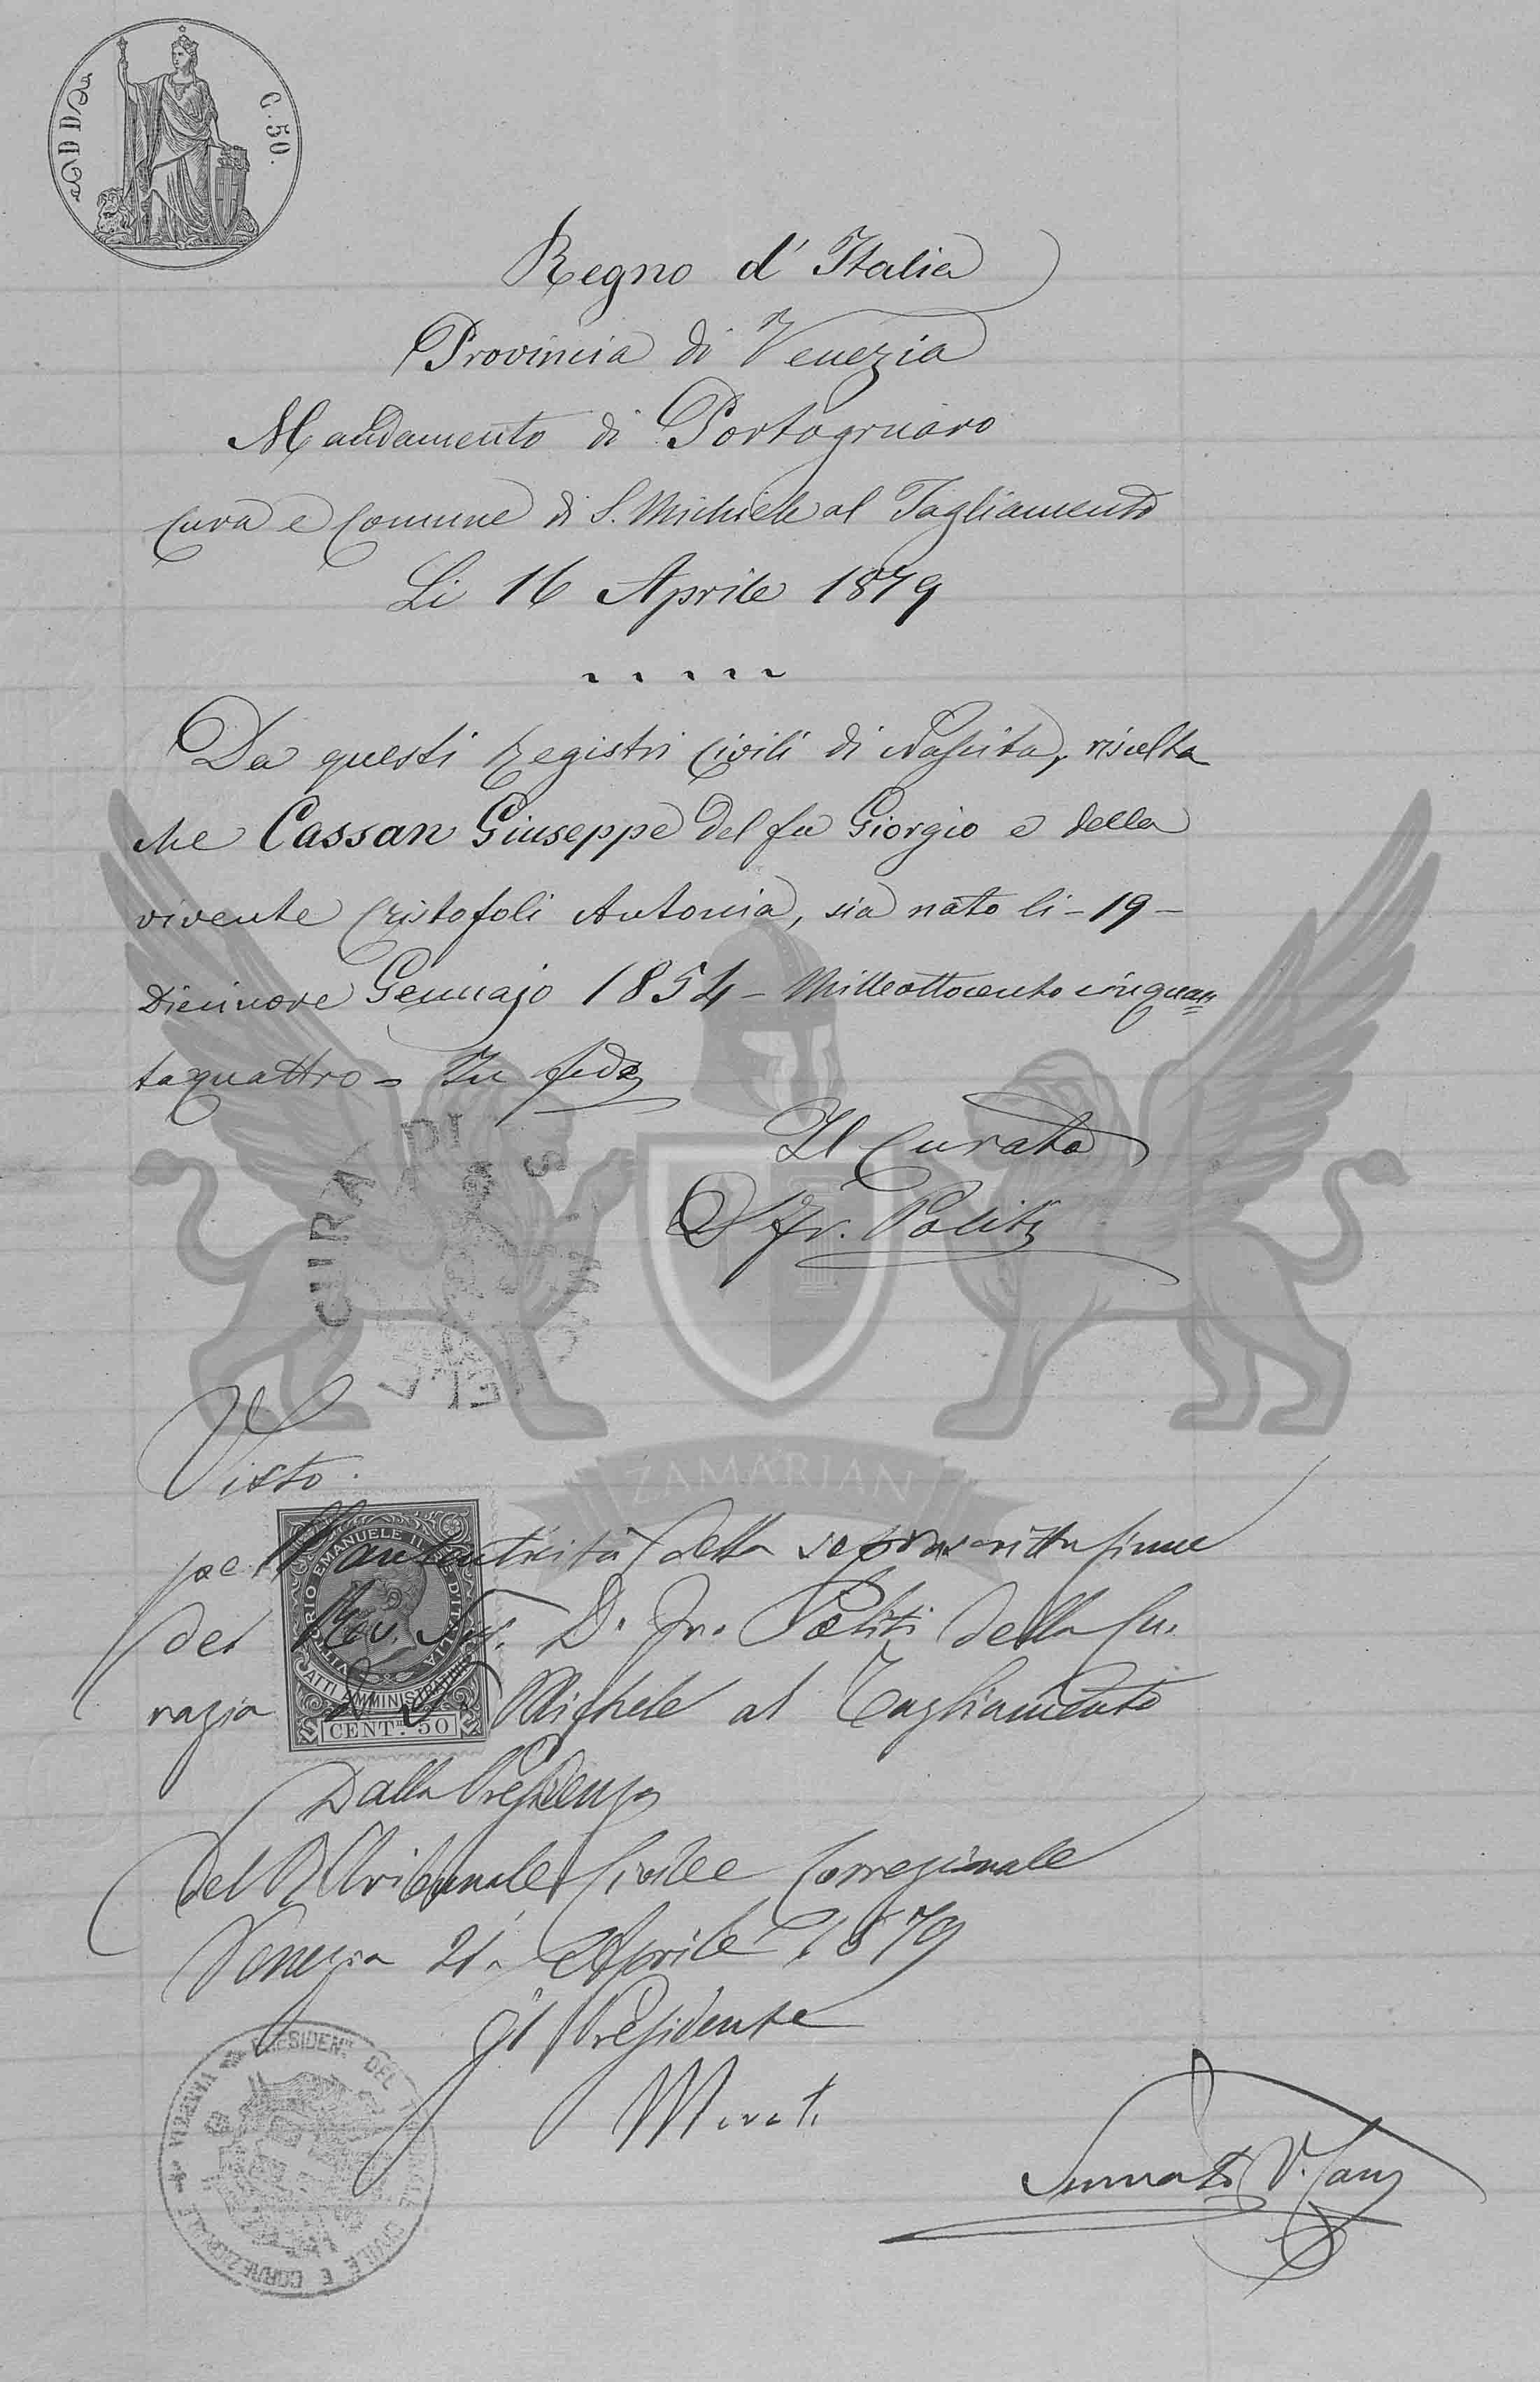 C. 50.
Regno d'Italia
Provincia di Venezia
Mandamento di Portogruaro
Cura e Comune di S. Michiele al Tagliamento
Li 16 Aprile 1879
Da questi Registri Civili di Nascita, risulta
che Cassan Giuseppe del fu Giorgio e della
vivente Cristofoli Antonia, sia nato li - 19 -
Diecinove Gennajo 1854 - Milleottocento cinquan=
taquattro - In fede
Il Curato
D Fr. Politi
CURA DI S.
ZAMARIAN
Visto
per l'autenticità della soprascritta firma
del Rev. D. Fr. Politi della Cu.
razia di S. Michele al Tagliamento
VITTORIO EMANUELE II RE D'ITALIA
ATTI AMMINISTRATIVI
CENT. 50
Dalla Presidenza
del R Tribunale Civile e Correzionale
Venezia 21 Aprile 1879
Il Presidente
PRESIDENTE DEL TRIBUNALE CIVILE E CORREZIONALE VENEZIA